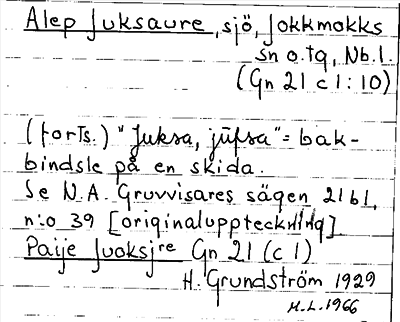 Alep Juksaure, sjö, Jokkmokks
sn o. tg, Nb. l.
(Gn 21 c 1:10)
(forts.) "Juksa, jūfsa" = bak-
bindsle på en skida.
Se N.A. Gruvvisares sägen 21 b 1,
n:o 39 [originaluppteckning]
Paije Juoksjre Gn 21 (c 1)
H. Grundström 1929
H.L. 1966